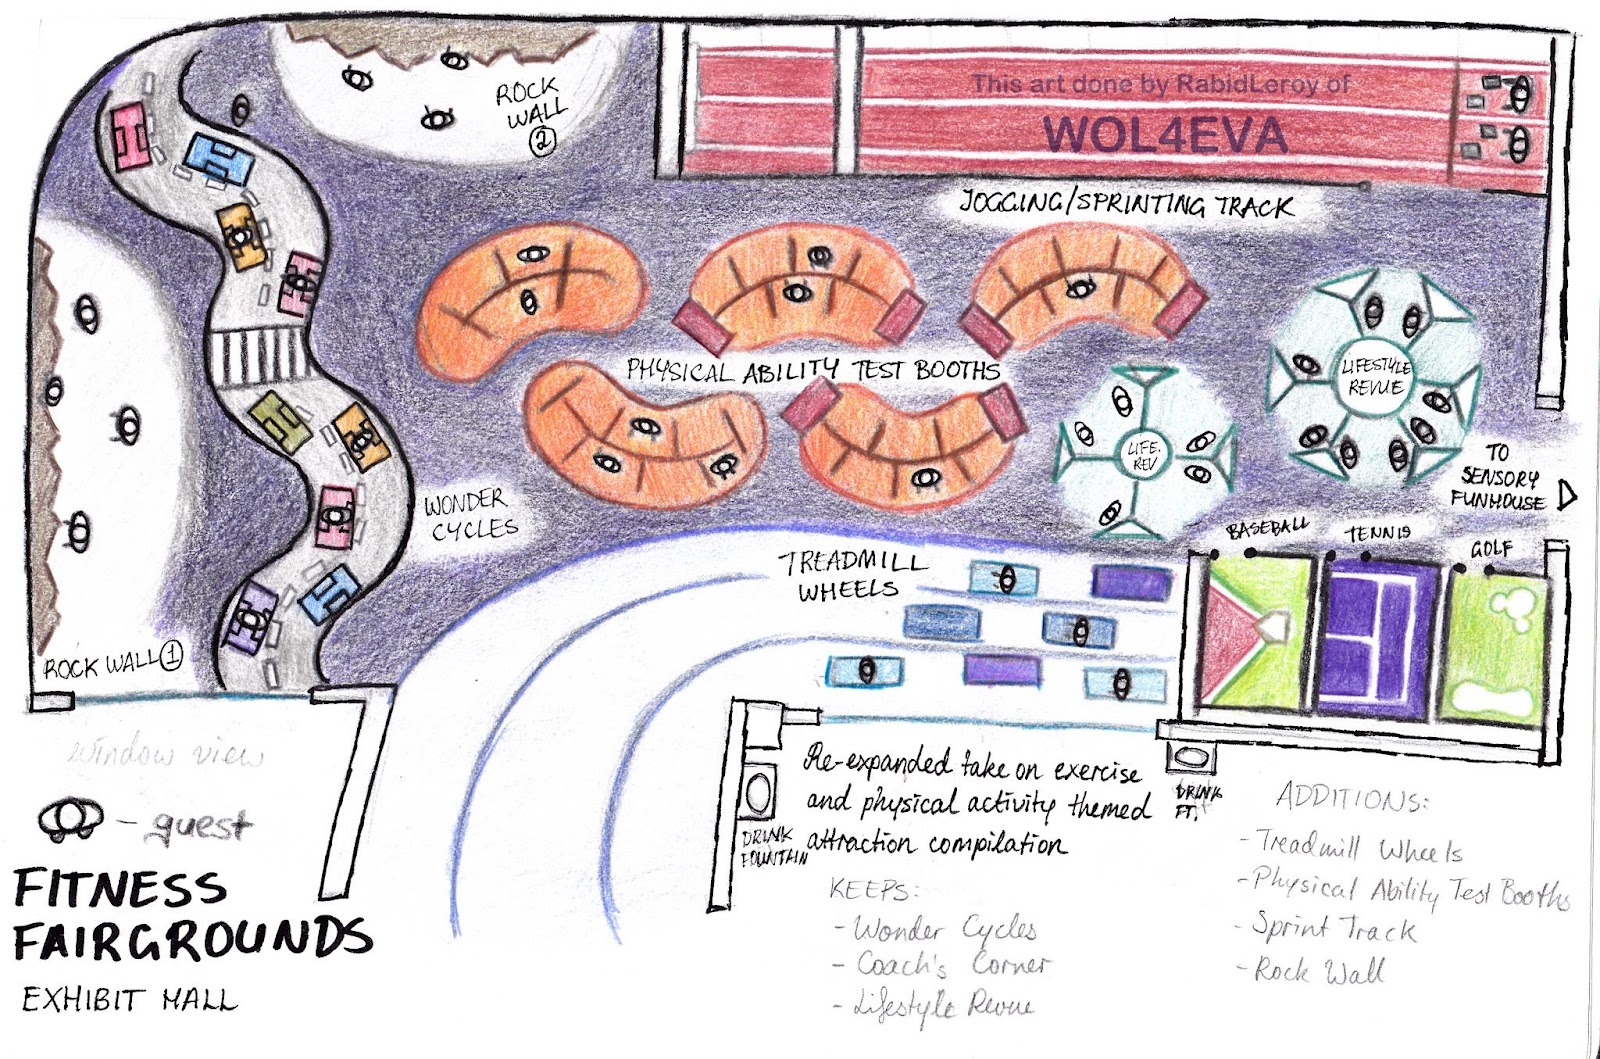 ROCK
WALL
2
This art done by RabidLeroy of
WOL4EVA
JOGGING/SPRINTING TRACK
PHYSICAL ABILITY TEST BOOTHS
LIFESTYLE
REVUE
LIFE.
REV
TO
SENSORY
FUNHOUSE
WONDER
CYCLES
BASEBALL
TENNIS
GOLF
TREADMILL
WHEELS
ROCK WALL 1
Window view
- guest
FITNESS
FAIRGROUNDS
EXHIBIT HALL
DRINK
FOUNTAIN
Re-expanded take on exercise
and physical activity themed
attraction compilation
DRINK
FT.
KEEPS:
- Wonder Cycles
- Coach's Corner
- Lifestyle Revue
ADDITIONS:
- Treadmill Wheels
- Physical Ability Test Booths
- Sprint Track
- Rock Wall